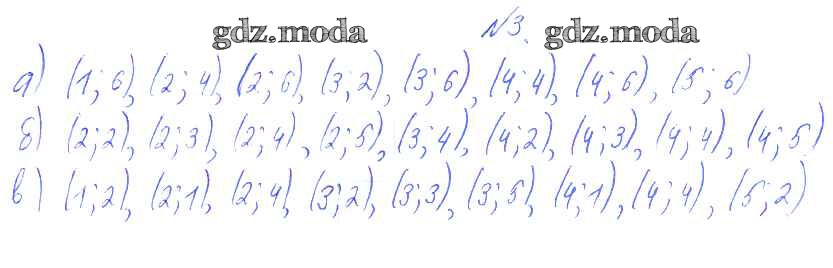 gdz.moda №3. gdz.moda
а) (1; 6), (2; 4), (2; 6), (3; 2), (3; 6), (4; 4), (4; 6), (5; 6)
б) (2; 2), (2; 3), (2; 4), (2; 5), (3; 4), (4; 2), (4; 3), (4; 4), (4; 5)
в) (1; 2), (2; 1), (2; 4), (3; 2), (3; 3), (3; 5), (4; 1), (4; 4), (5; 2)